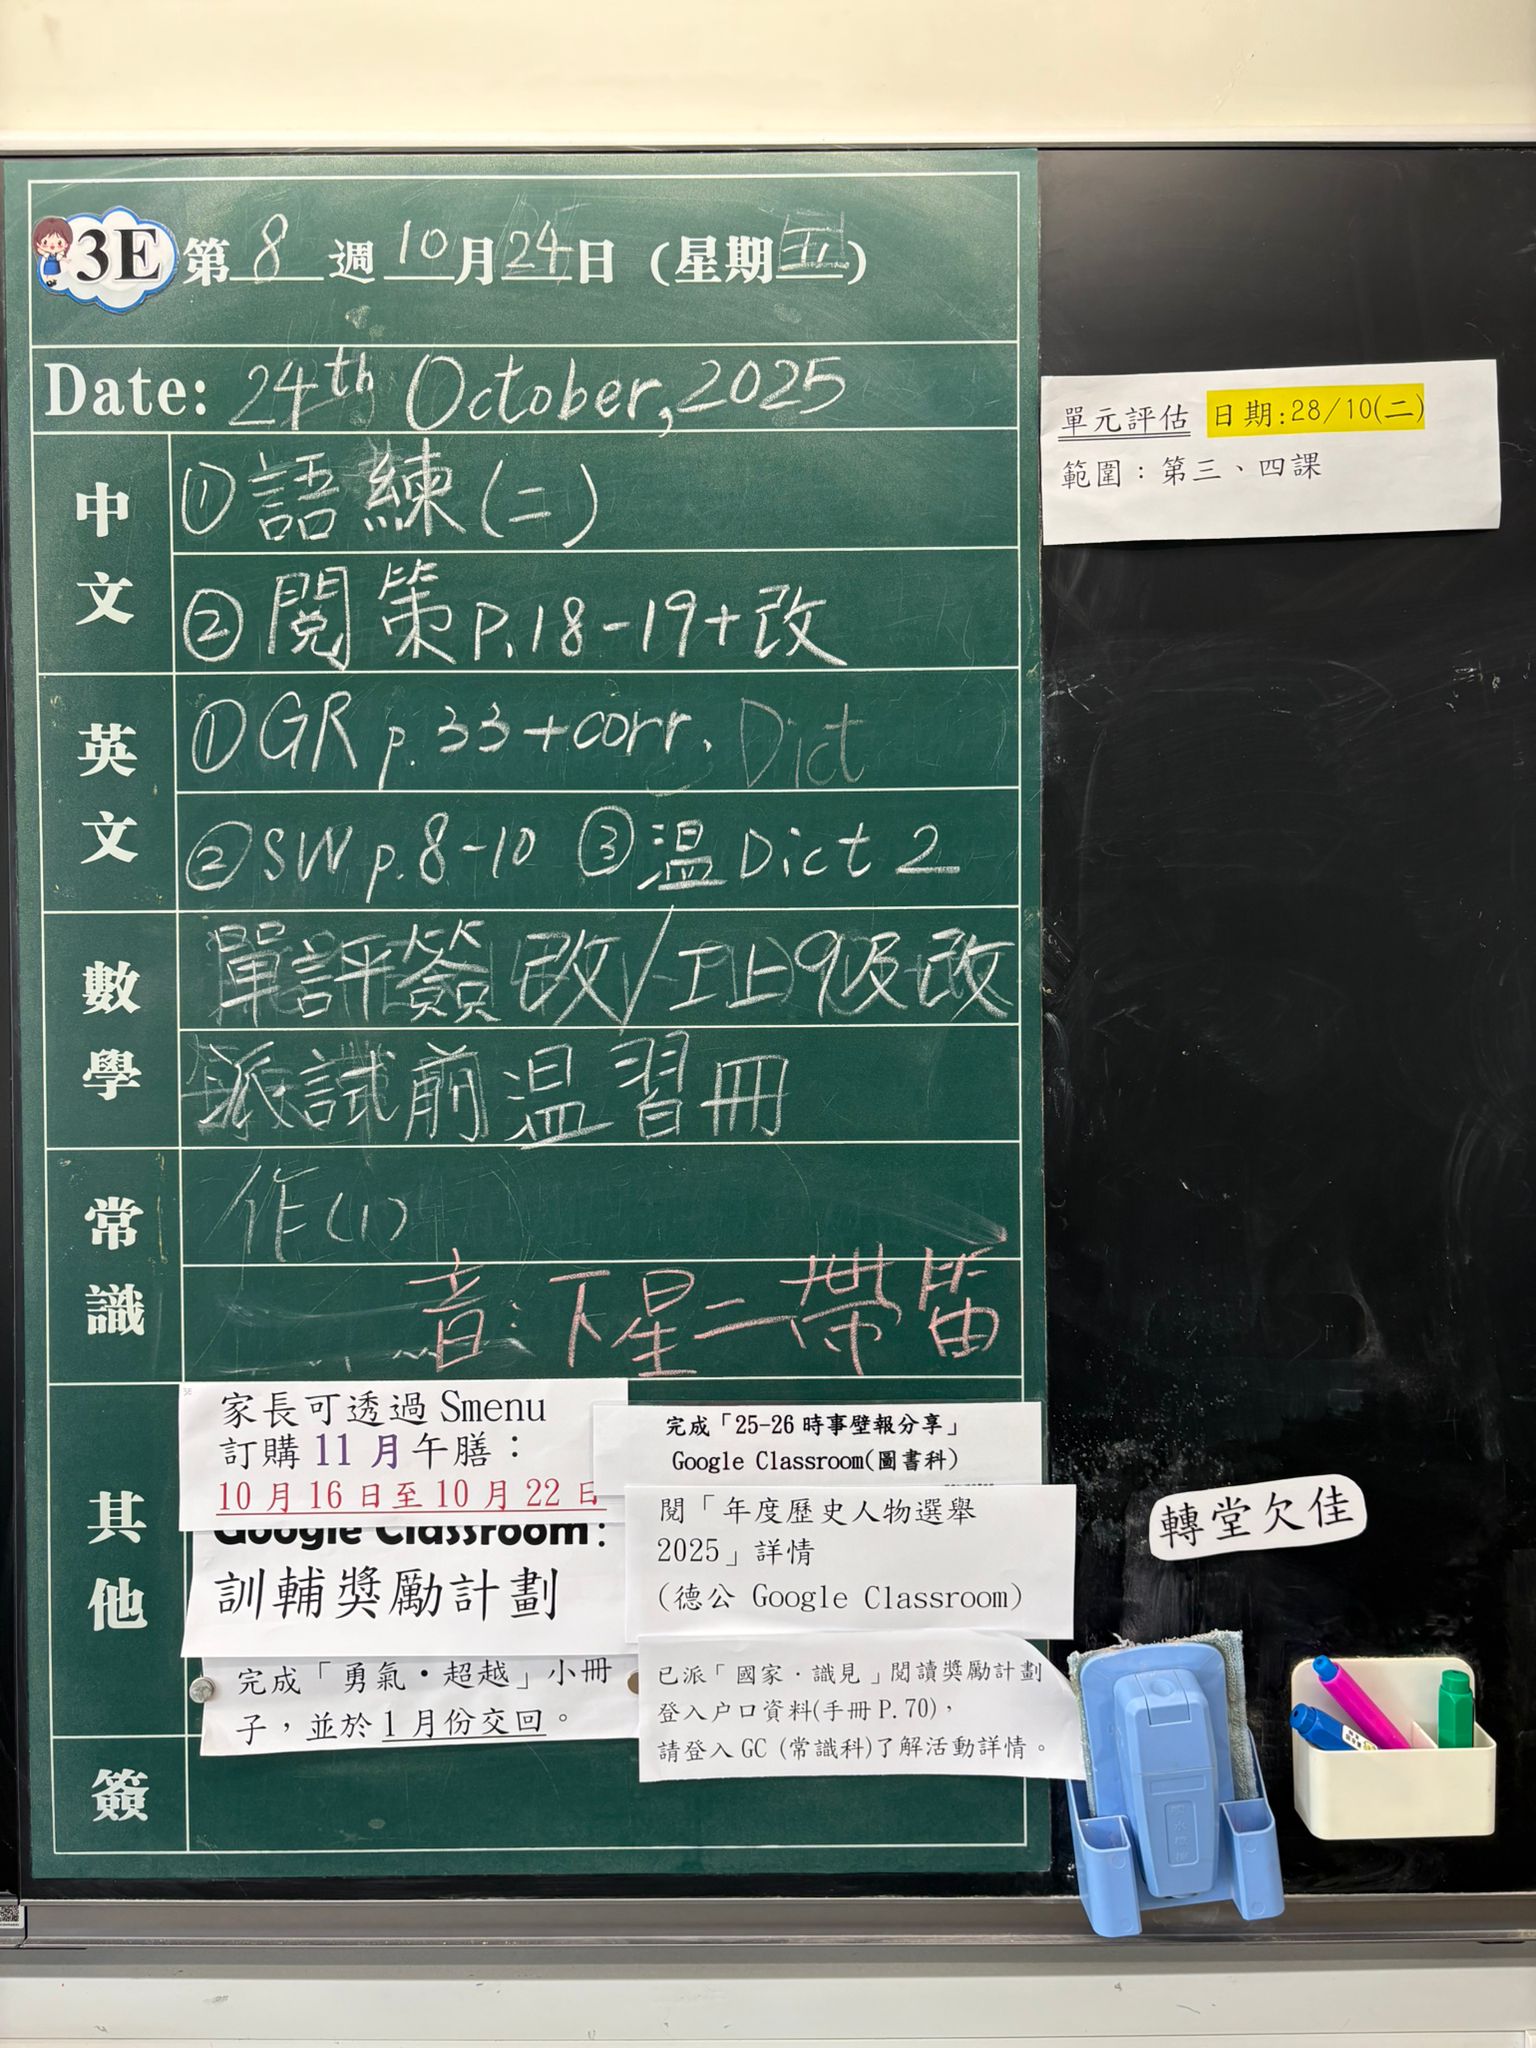 3E 第 8 週 10 月 24 日 (星期五)
Date: 24th October, 2025
中文
① 語練(二)
② 閱策 P.18-19+改
英文
① GR p.33+corr. Dict
② SW p.8-10 ③ 溫 Dict 2
數學
單評簽改/工上9及改
派試前溫習冊
常識
作(1)
音: 下星二帶笛
其他
家長可透過 Smenu
訂購 11 月午膳：
10 月 16 日至 10 月 22 日
Google Classroom:
訓輔獎勵計劃
完成「勇氣·超越」小冊
子，並於 1 月份交回。
完成「25-26 時事壁報分享」
Google Classroom(圖書科)
閱「年度歷史人物選舉
2025」詳情
(德公 Google Classroom)
已派「國家·識見」閱讀獎勵計劃
登入户口資料(手冊 P.70)，
請登入 GC (常識科)了解活動詳情。
簽
單元評估 日期:28/10(二)
範圍：第三、四課
轉堂欠佳